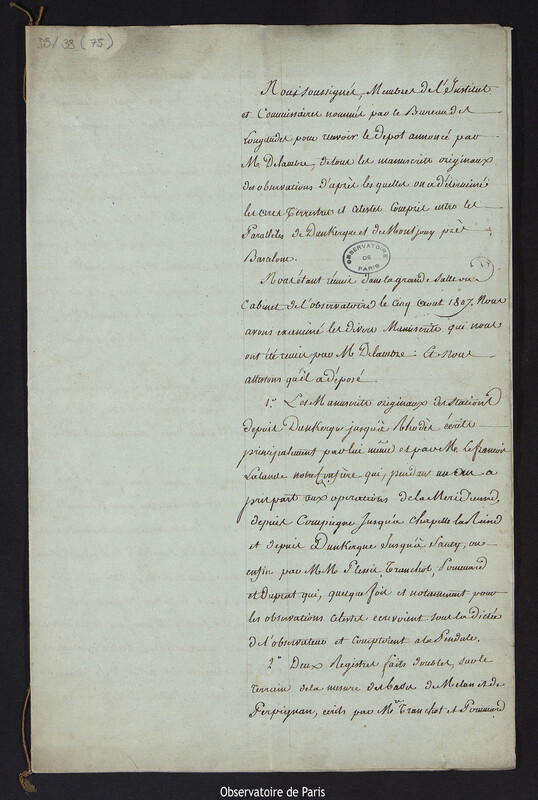 DB/38 (75)
Nous soussignés, Membres de l'Institut
et Commissaires nommés par le Bureau des
Longitudes pour recevoir le depot annoncé par
Mr. Delambre, de tous les manuscrits originaux
des observations d'après lesquelles on a déterminé
les arcs Terrestres et celestes compris entre les
Parallèles de Dunkerque et de Montjouy près
Barcelone.
OBSERVATOIRE
DE
PARIS
Nous étant réunis dans la grande Salle ou
Cabinet de l'observatoire le cinq Aout 1807. Nous
avons examiné les divers Manuscrits qui nous
ont été remis par Mr. Delambre : Et nous
attestons qu'il a déposé
1.° Les Manuscrits originaux des stations
depuis Dunkerque jusqu'à Rhodès écrits
principalement par lui même et par Mr. Lefrançois
Lalande notre Confrère qui, pendant un an a
pris part aux operations de la Meridienne,
depuis Compiegne jusqu'à Chapelle la Reine
et depuis Dunkerque jusqu'à
enfin par M.M. Plessis, Tranchot, Pommard
et Duprat qui, quelque fois et notamment pour
les observations celestes ecrivoient sous la dictée
de l'observateur et comptoient a la Pendule.
2.° Deux Registres faits doubles, sur le
terrain de la mesure des bases de Melun et de
Perpignan, ecrits par Mrs. Tranchot et Pommard
Observatoire de Paris